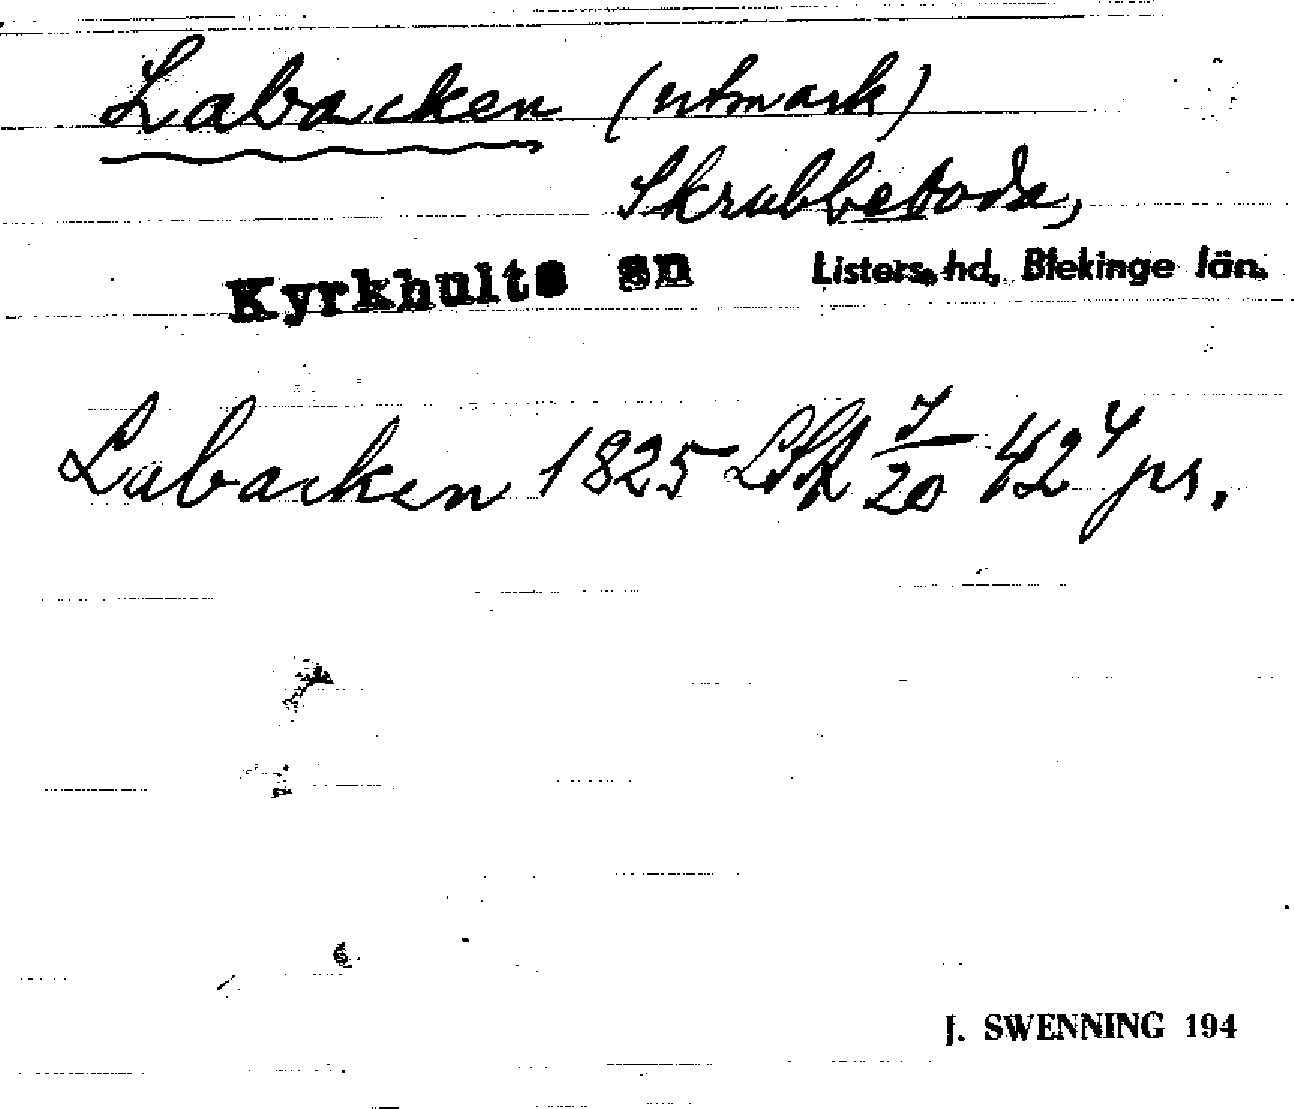 Labacken (utmark)
Skrubbeboda,
Kyrkhults sn Listers hd, Blekinge län.
Labacken 1825 LSK 7/20 42⁴ prs.
J. SWENNING 194